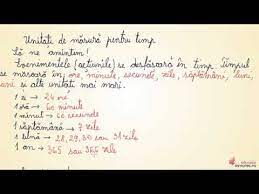 Unități de măsură pentru timp
Să ne amintim!
Evenimentele (acțiunile) se desfășoară în timp. Timpul
se măsoară în ore, minute, secunde, zile, săptămâni, luni,
ani și alte unități mai mari.
1 zi → 24 ore
1 oră → 60 minute
1 minut → 60 secunde
1 săptămână → 7 zile
1 lună → 28, 29, 30 sau 31 zile
1 an → 365 sau 366 zile